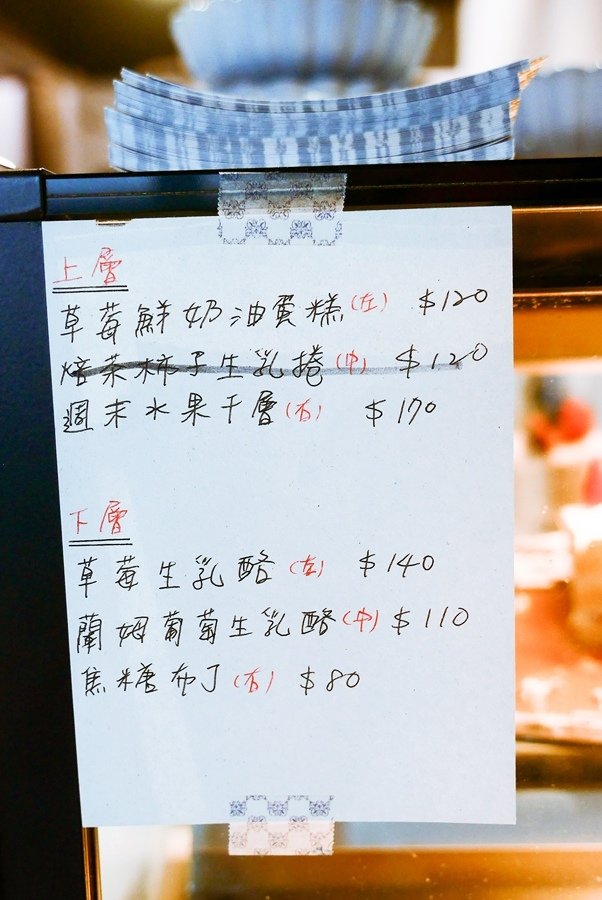 上層
草莓鮮奶油蛋糕(左) $120
焙茶柿子生乳捲(中) $120
週末水果千層(右) $170
下層
草莓生乳酪(左) $140
蘭姆葡萄生乳酪(中) $110
焦糖布丁(右) $80